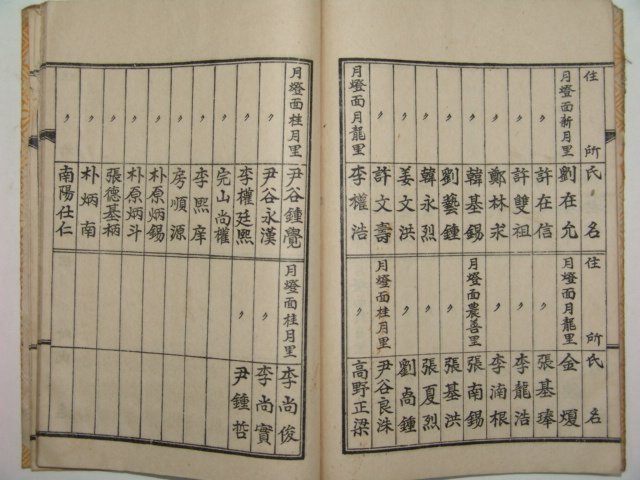 住 所 氏 名
月燈面新月里 劉在允
〃 許在信
〃 許雙祖
〃 鄭林永
〃 韓基錫
〃 劉藝鍾
〃 韓永烈
〃 姜文洪
〃 許文壽
月燈面月龍里 李權浩
住 所 氏 名
月燈面月龍里 金煖
〃 張基琫
〃 李龍浩
〃 李湳根
月燈面農善里 張南錫
〃 張基洪
〃 張夏烈
〃 劉尙鍾
月燈面桂月里 尹谷良洙
〃 高野正梁
月燈面桂月里 尹谷鍾覺
〃 尹谷永漢
〃 李權廷熙
〃 完山尙權
〃 李熙庠
〃 房順源
〃 朴原炳錫
〃 朴原炳斗
〃 張德基柄
〃 朴炳南
〃 南陽仕仁
月燈面桂月里 李尙俊
〃 李尙實
〃 尹鍾哲